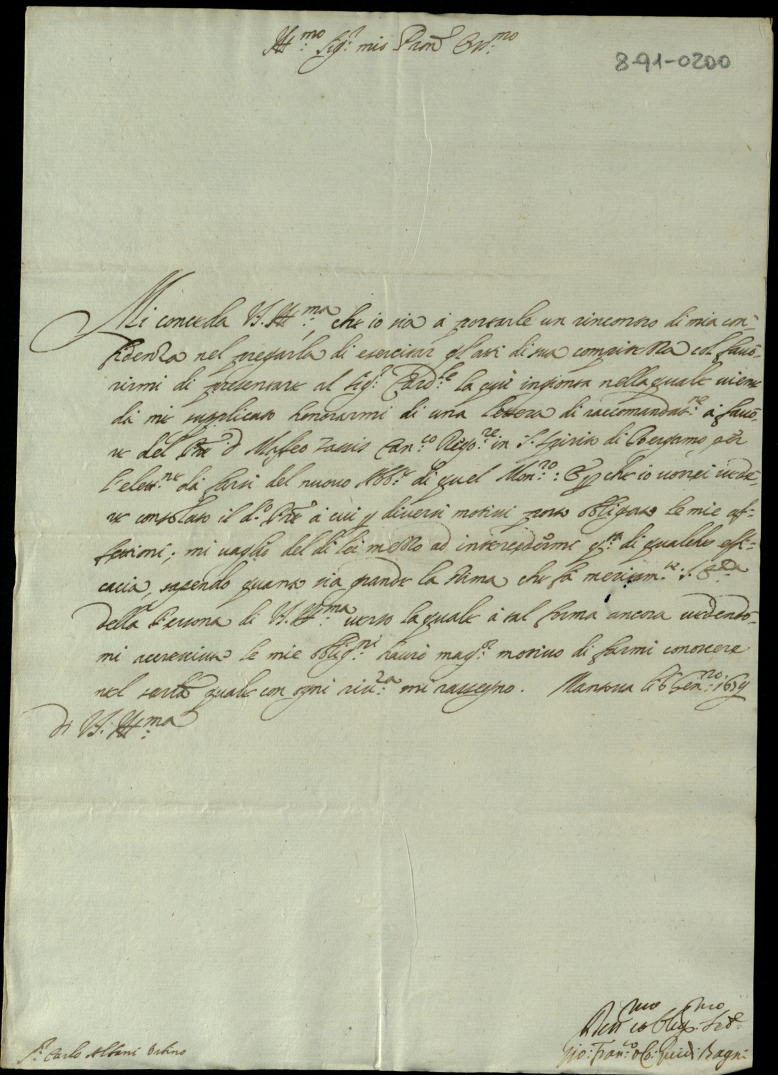 Ill:mo Sig:r mio Pron Oss:mo
8-91-0200
Mi conceda V.S. Ill:ma, che io sia à portarle un rincontro di mia con=
fidenza nel pregarla di esercitar gl'atti di sua compitezza col favo=
rirmi di presentare al Sig:r Card:le la quì ingionta nella quale viene
da mè supplicato honorarmi di una lettera di raccomandat:ne à favo=
re del P're D. Mafeo Tassis Can:co Reg:re in S:to Spirito di Bergamo, per
l'elet:ne da farsi del nuovo Abb:e di quel Mon:ro: E p che io vorrei vede=
re consolato il d:o P're à cui p diversi motivi porto obligate le mie af=
fettioni; mi vaglio del di lei mezzo ad intercedermi q:ta di qualche effi=
cacia, sapendo quanto sia grande la stima che fà meritam:te S: Em:za
della Persona di V.S. Ill:ma verso la quale à tal forma ancora vedendo=
mi accresciute le mie oblig:ni havrò mag:r motivo di farmi conoscere
nel quale con ogni riv:za mi rassegno. Mantova li 6 Gen:ro 1659
di V.S. Ill:ma
S:r Carlo Albani Urbino
Dev:mo et oblig:mo Ser:e
Gio: Fran:co Co: Guidi Bagni